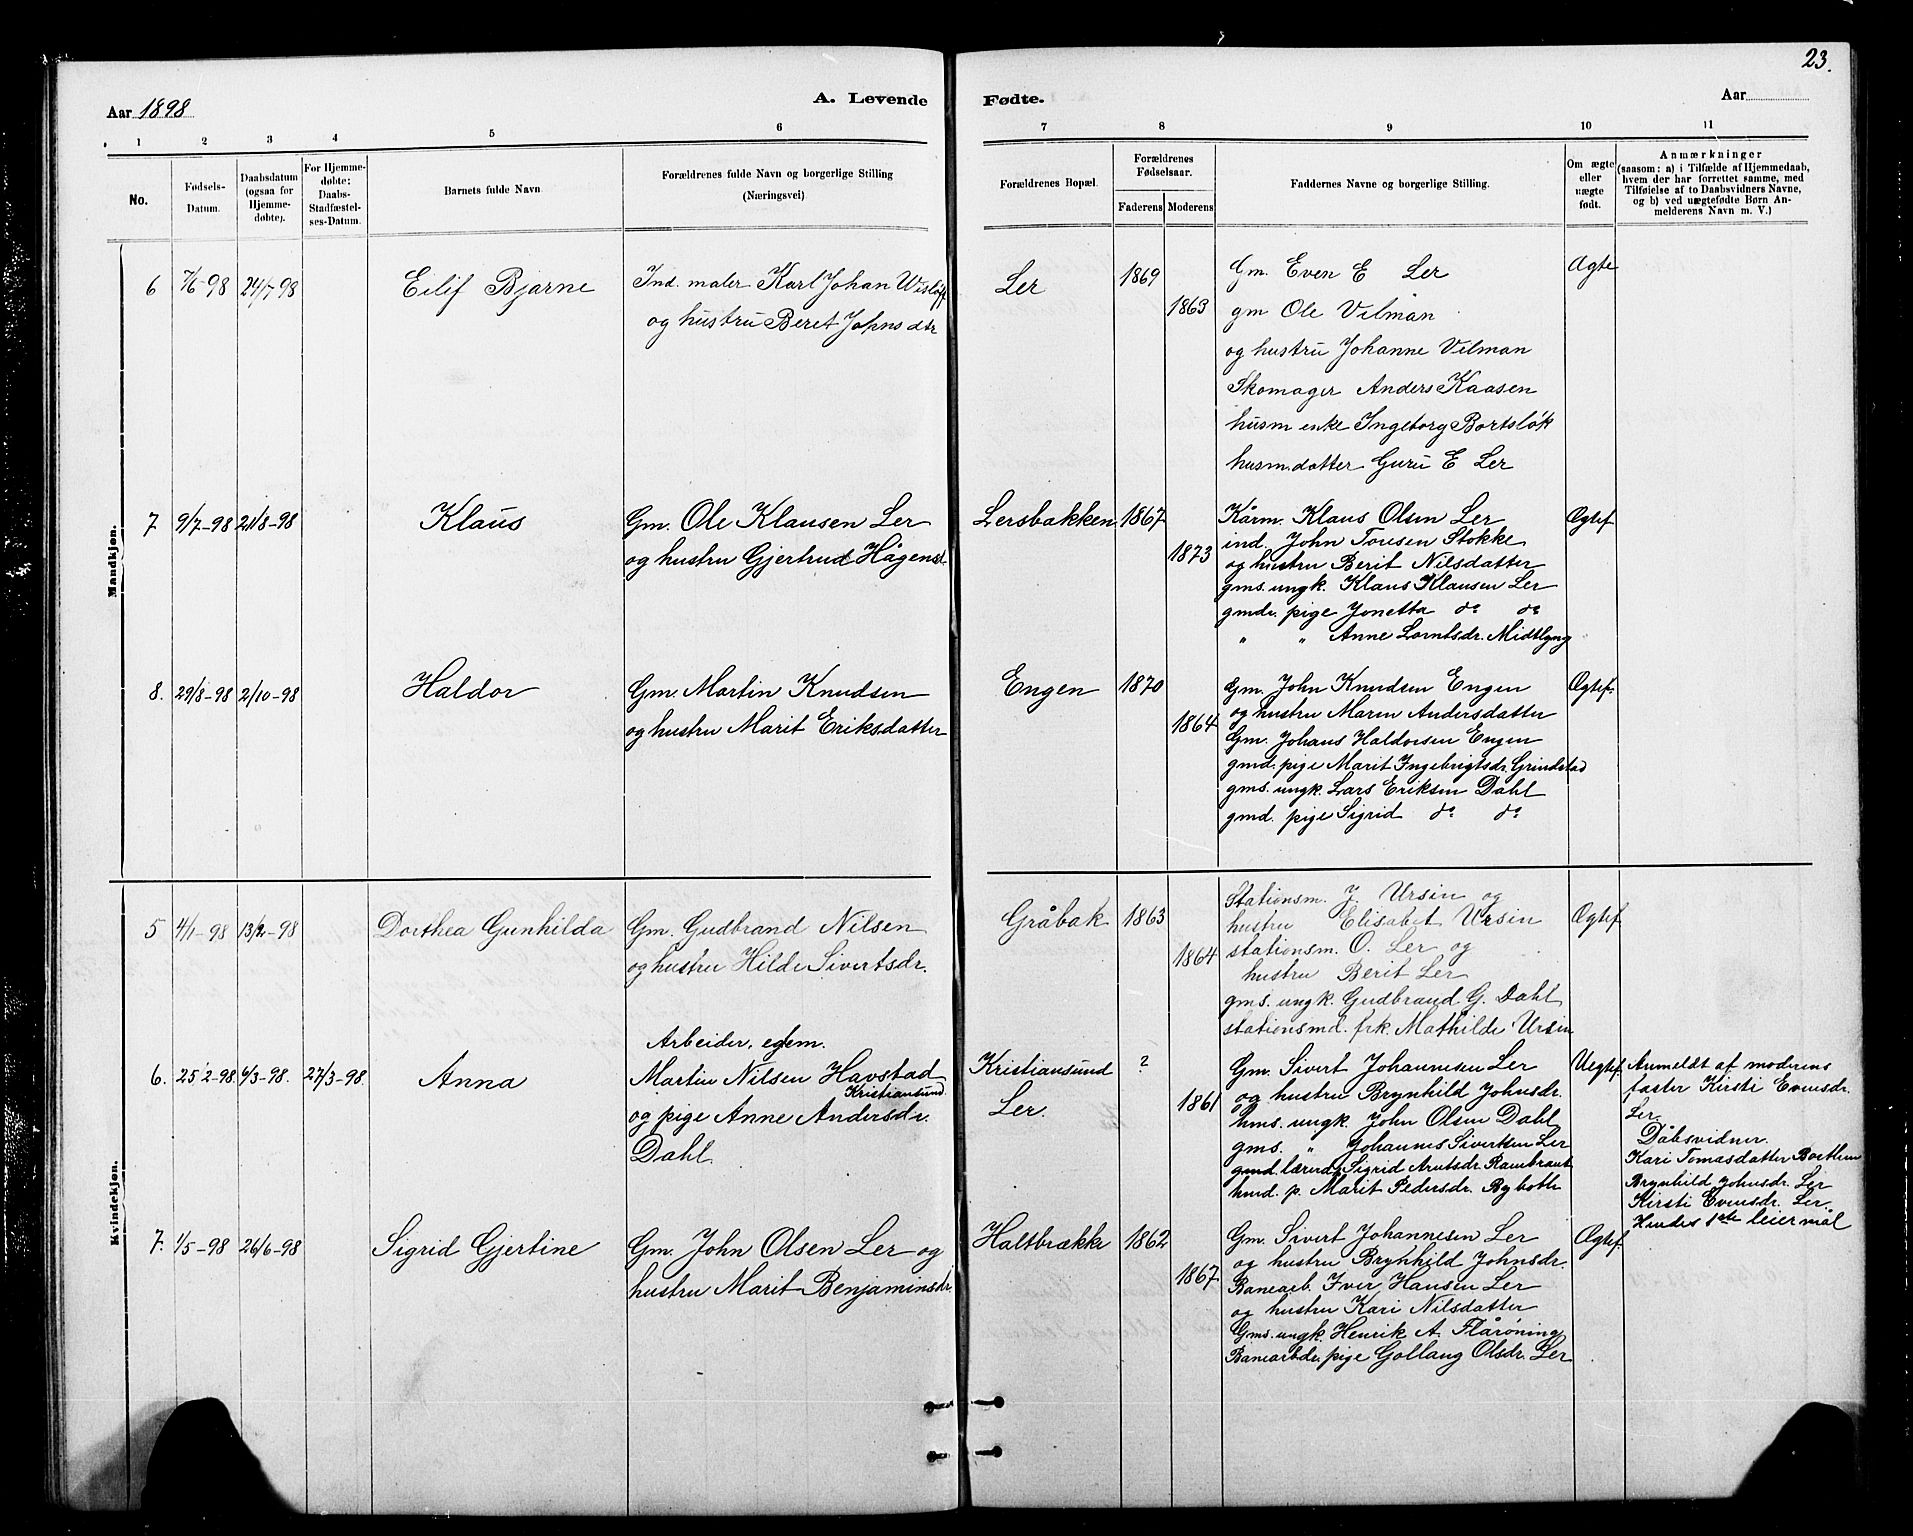 23.
Aar 1898
A. Levende
Fødte.
Aar
1 2 3 4 5 6 7 8 9 10 11
No.
Fødsels-Datum.
Daabsdatum (ogsaa for Hjemmedøbte).
For Hjemmedøbte; Daabs-Stadfæstelses-Datum.
Barnets fulde Navn
Forældrenes fulde Navn og borgerlige Stilling (Næringsvei)
Forældrenes Bopæl.
Forældrenes Fødselsaar.
Faderens Moderens
Faddernes Navne og borgerlige Stilling.
Om ægte eller uægte født.
Anmærkninger
(saasom: a) i Tilfælde af Hjemmedaab, hvem der har forrettet samme, med Tilføielse af to Daabsvidners Navne, og b) ved uægtefødte Børn Anmelderens Navn m. V.)
Mandkjøn.
6 7/6-98 24/7-98 Eilif Bjarne
Ind. maler Karl Johan Wisløff
og hustru Beret Johnsdtr
Ler 1869
1863
Gm. Even E Ler
gm Ole Vilman
og hustru Johanne Vilman
Skomager Anders Kaasen
husm enke Ingeborg Bortsløk
husm.datter Guru E Ler
Ægte
7 9/7-98 21/8-98 Klaus
Gm. Ole Klausen Ler
og hustru Gjertrud Hågensd.
Lersbakken 1867
1873
Kårm. Klaus Olsen Ler
ind. John Toresen Stokke
og hustru Berit Nilsdatter
gms. ungk. Klaus Klausen Ler
gmdr. pige Jonetta do do
" " Anne Lorntsdr. Midtlyng
Ægtef
8. 29/8-98 2/10-98 Haldor
Gm. Martin Knudsen
og hustru Marit Eriksdatter
Engen 1870
1864
Gm. John Knudsen Engen
og hustru Maren Andersdatter
Gm. Johans Haldorsen Engen
gmd. pige Marit Ingebrigtsdr. Grindstad
gms. ungk. Lars Eriksen Dahl
gmd. pige Sigrid do do
Ægtef.
Kvindekjøn.
5 4/1-98 13/2-98 Dorthea Gunhilda
Gm. Gudbrand Nilsen
og hustru Hilde Sivertsdr.
Gråbak 1863
1864
Stationsm. J. Ursin og
hustru Elisabet Ursin
stationsm. O. Ler og
hustru Berit Ler
gms. ungk. Gudbrand G. Dahl
stationsmd. frk. Mathilde Ursin
Ægtef
6. 25/2-98. 6/3-98. 27/3-98. Anna
Arbeider, egem.
Martin Nilsen Havstad
Kristiansund
og pige Anne Andersdr.
Dahl.
Kristiansund ?
Ler. 1861
Gm. Sivert Johannesen Ler
og hustru Brynhild Johnsdr.
hms. ungk. John Olsen Dahl
gms. " Johannes Sivertsen Ler
gmd. lærerd. Sigrid Arntsdr. Rambraut
hmd. p. Marit Pedersdr. Bybotn
Uegtef.
Anmeldt af moderens
faster Kirsti Evensdr.
Ler
Dåbsvidner.
Kari Tomasdatter Borthem
Brynhild Johnsdr. Ler
Kirsti Evensdr. Ler.
Hendes 1ste leiermål
7. 1/5-98 26/6-98 Sigrid Gjertine
Gm. John Olsen Ler og
hustru Marit Benjaminsdr.
Haltbrække 1862
1867
Gm. Sivert Johannesen Ler
og hustru Brynhild Johnsdr.
Banearb. Iver Hansen Ler
og hustru Kari Nilsdatter
Gms. ungk. Henrik A. Flårøning
Banearbdr. pige Gollaug Olsdr. Ler
Ægtef.